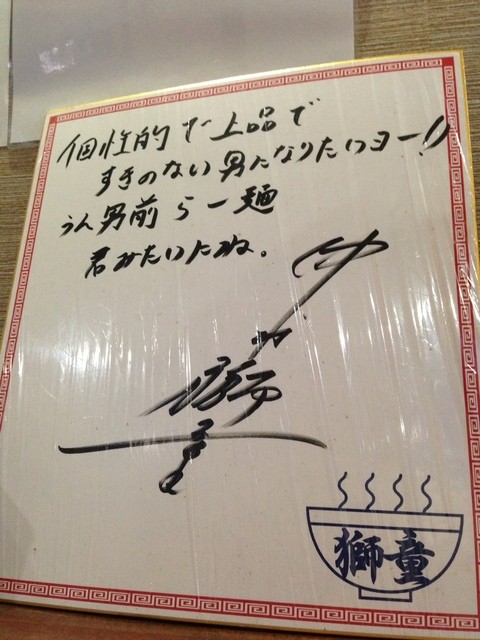 個性的で上品で
すきのない男になりたいヨー!!
うん男前らー麺
君みたいだね。
獅童